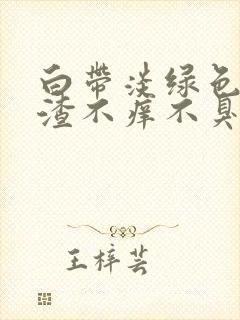 白帶淡绿色
渣不痒不臭
王梓芸